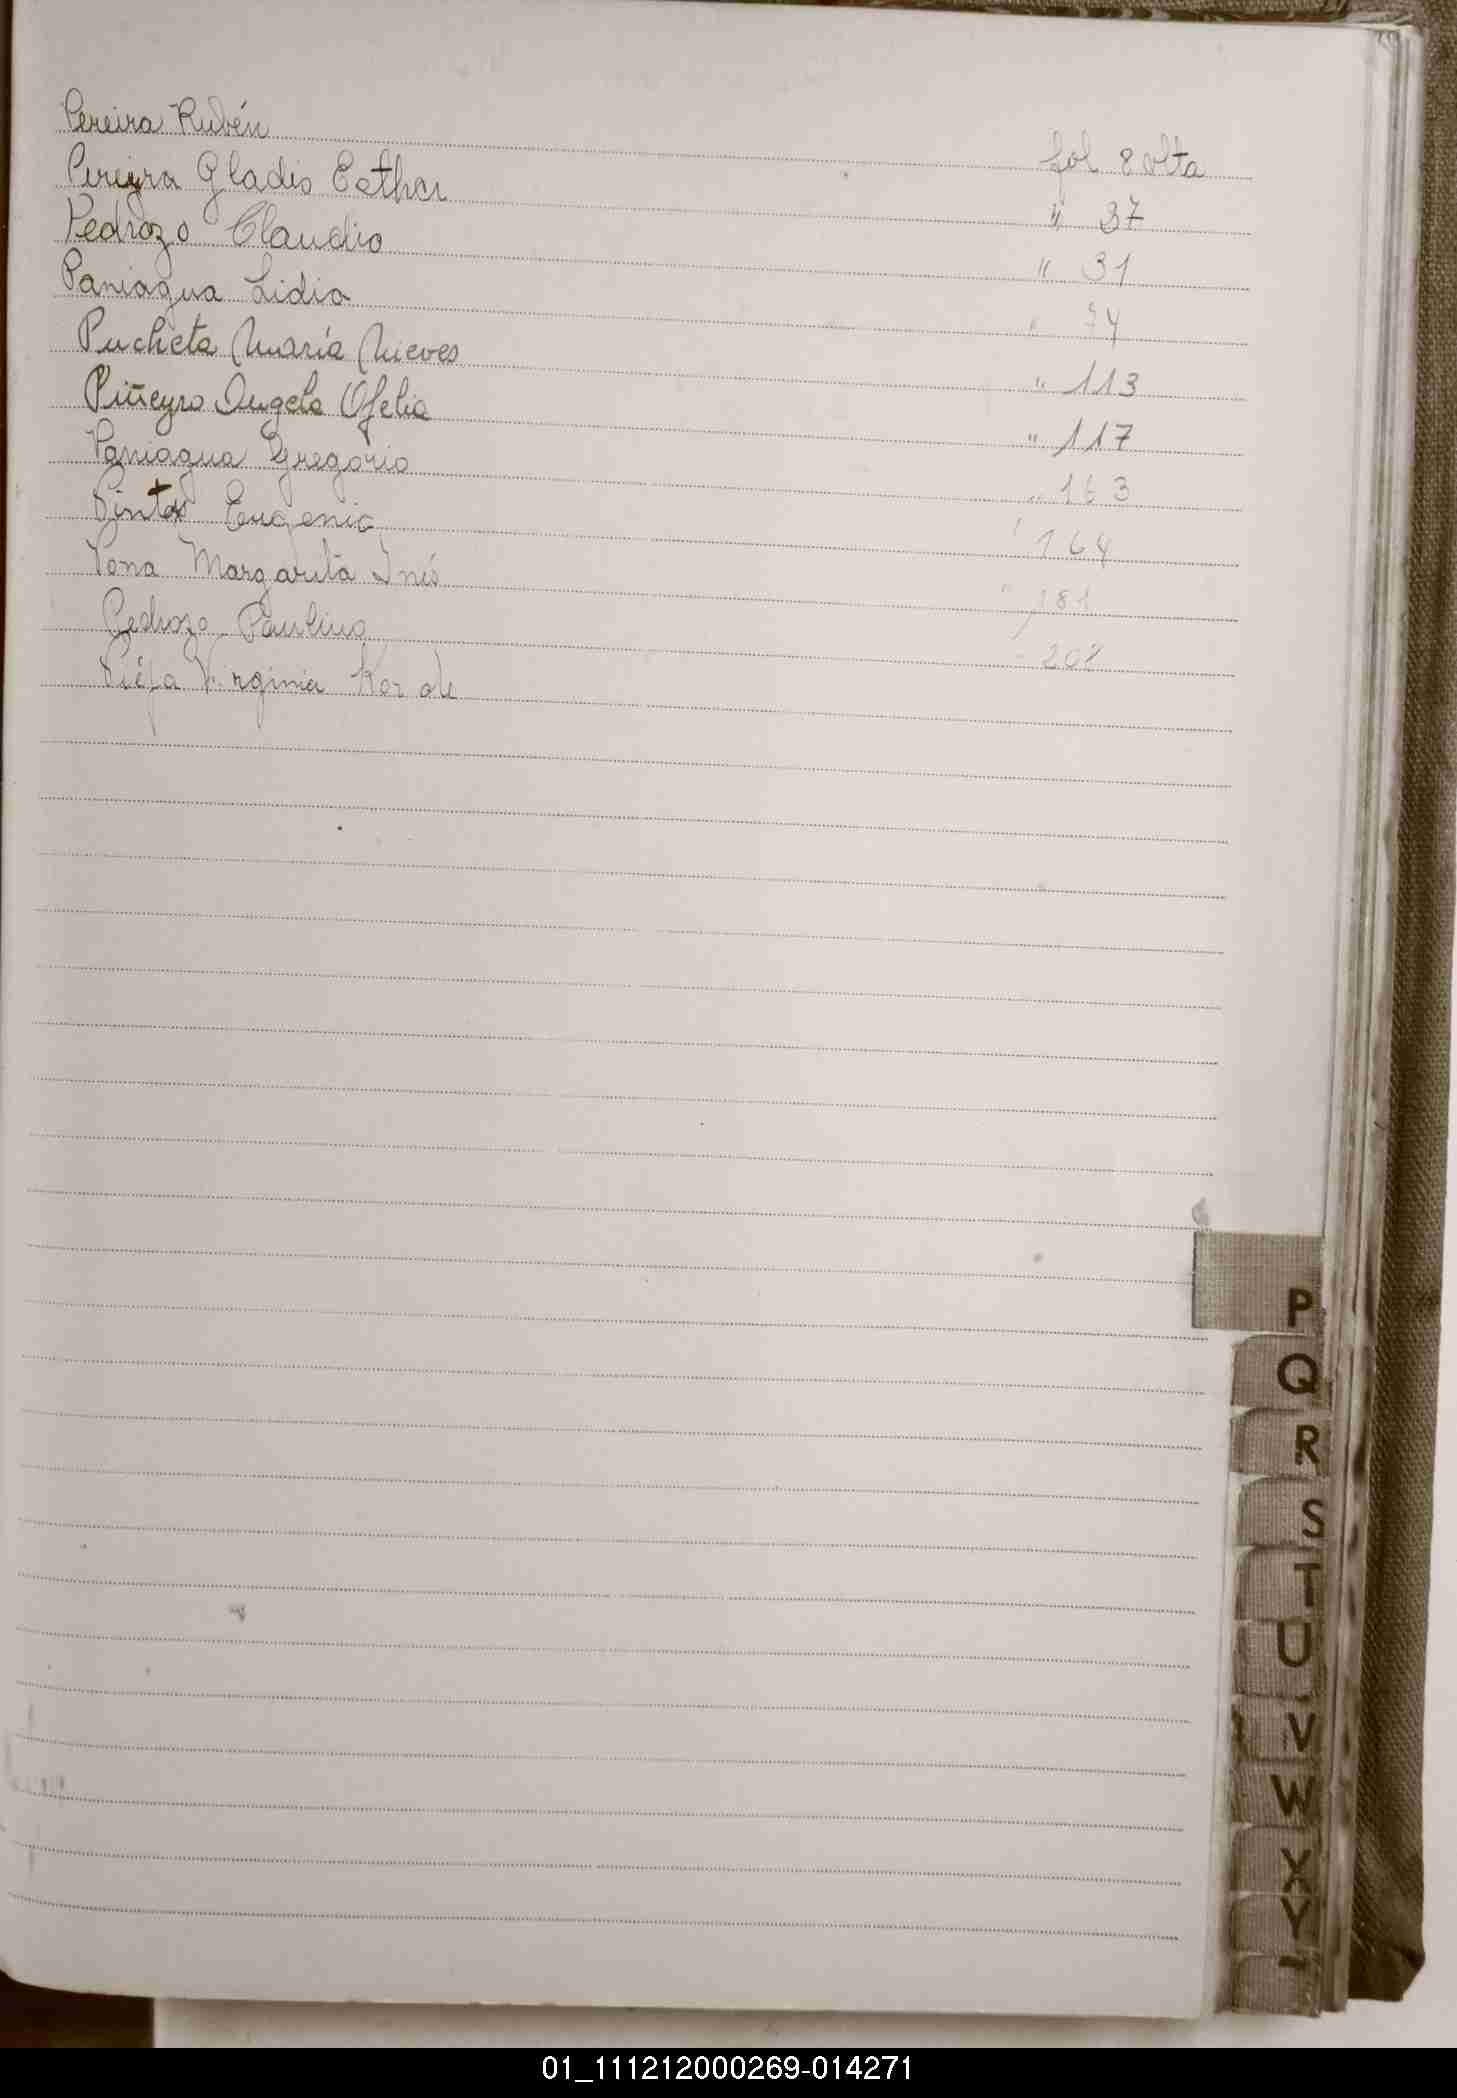 Pereira Rubén fol 8 vlta
Pereyra Gladis Esther " 37
Pedrozo Claudio " 31
Paniagua Lidia " 74
Pucheta María Nieves " 113
Piñeyro Angela Ofelia " 117
Paniagua Gregorio " 163
Pintos Eugenia " 164
Pona Margarita Inés " 181
Pedrozo Paulino 202
Virginia
P
Q
R
S
T
U
V
W
X
Y
01_111212000269-014271